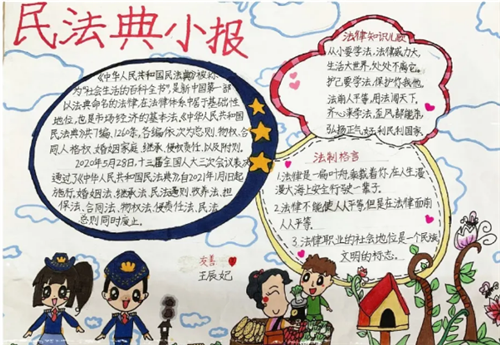 民法典小报
《中华人民共和国民法典》被称
为"社会生活的百科全书",是新中国第一部
以法典命名的法律,在法律体系中居于基础性
地位,也是市场经济的基本法,《中华人民共和国
民法典》共7编、1260条,各编依次为总则、物权、合
同、人格权、婚姻家庭、继承、侵权责任,以及附则.
2020年5月28日,十三届全国人大三次会议表决
通过了《中华人民共和国民法典》,自2021年1月1日起
施行,婚姻法、继承法、民法通则、收养法、担
保法、合同法、物权法、侵权责任法、民法
总则同时废止.
友善
王辰妃
法律知识儿歌
从小要学法,法律威力大,
生活大世界,处处不离它.
护己要学法,保护你我他,
法前人平等,用法闯天下,
齐心来学法,歪风都能刹,
弘扬正气好,利民利国家.
法制格言
1.法律是一杨叶舟,乘载着你,在人生漫
漫大海上安全行驶一辈子.
2.法律不能使人人平等,但是在法律面前
人人平等.
3.法律职业的社会地位是一个民族
文明的标志.